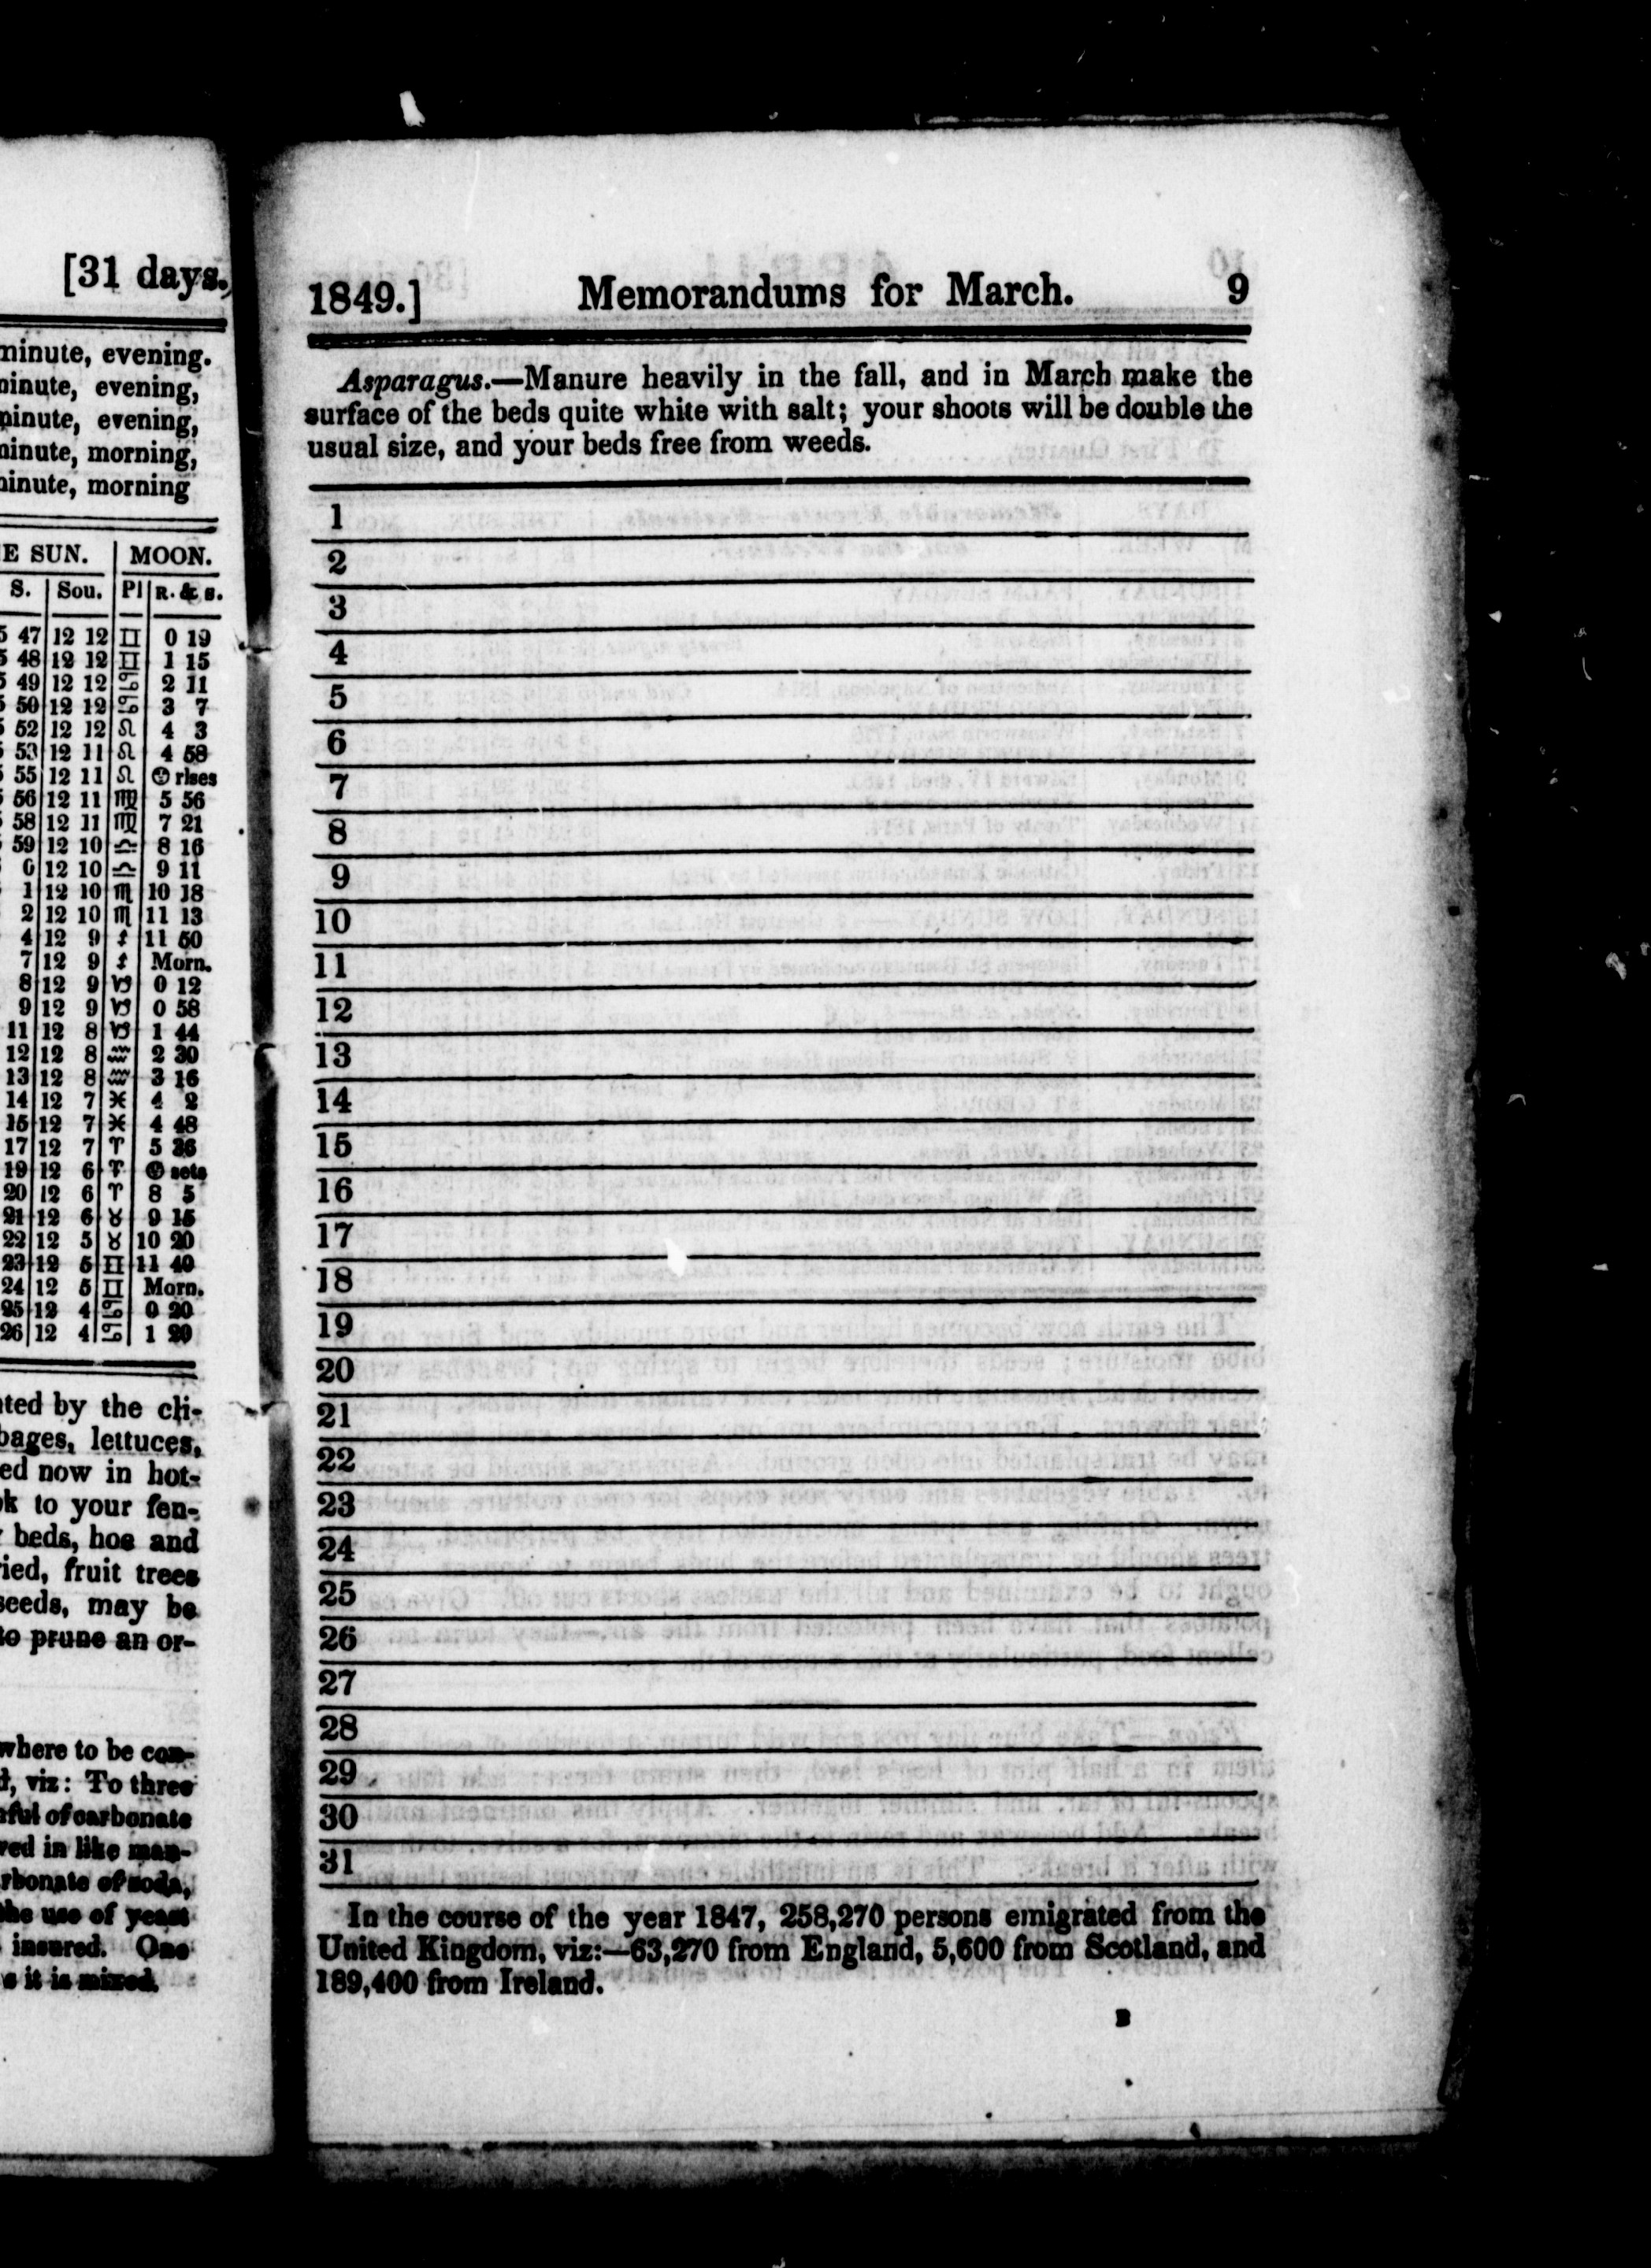 [31 days.
minute, evening.
minute, evening,
minute, evening,
minute, morning,
minute, morning
E SUN. MOON.
S. Sou. Pl R. & s.
5 47 12 12 ♊ 0 19
5 48 12 12 ♊ 1 15
5 49 12 12 ♋ 2 11
5 50 12 12 ♋ 3 7
5 52 12 12 ♌ 4 3
5 53 12 11 ♌ 4 58
55 12 11 ♌ rises
56 12 11 ♍ 5 56
58 12 11 ♍ 7 21
59 12 10 ♎ 8 16
0 12 10 ♎ 9 11
1 12 10 ♏ 10 18
2 12 10 ♏ 11 13
4 12 9 ♐ 11 50
7 12 9 ♐ Morn.
8 12 9 ♑ 0 12
9 12 9 ♑ 0 58
11 12 8 ♑ 1 44
12 12 8 ♒ 2 30
13 12 8 ♒ 3 16
14 12 7 ♓ 4 2
15 12 7 ♓ 4 48
17 12 7 ♈ 5 36
19 12 6 ♈ sets
20 12 6 ♈ 8 5
21 12 6 ♉ 9 15
22 12 5 ♉ 10 20
23 12 5 ♊ 11 40
24 12 5 ♊ Morn.
25 12 4 ♋ 0 20
26 12 4 ♋ 1 20
ted by the cli-
bages, lettuces,
ed now in hot-
k to your fen-
beds, hoe and
ied, fruit trees
seeds, may be
to prune an or-
where to be con-
d, viz: To three
ful of carbonate
red in like man-
rbonate of soda,
the use of yeast
insured. One
it is mixed.
1849.] Memorandums for March. 9
Asparagus.—Manure heavily in the fall, and in March make the
surface of the beds quite white with salt; your shoots will be double the
usual size, and your beds free from weeds.
1
2
3
4
5
6
7
8
9
10
11
12
13
14
15
16
17
18
19
20
21
22
23
24
25
26
27
28
29
30
31
In the course of the year 1847, 258,270 persons emigrated from the
United Kingdom, viz:—63,270 from England, 5,600 from Scotland, and
189,400 from Ireland.
B